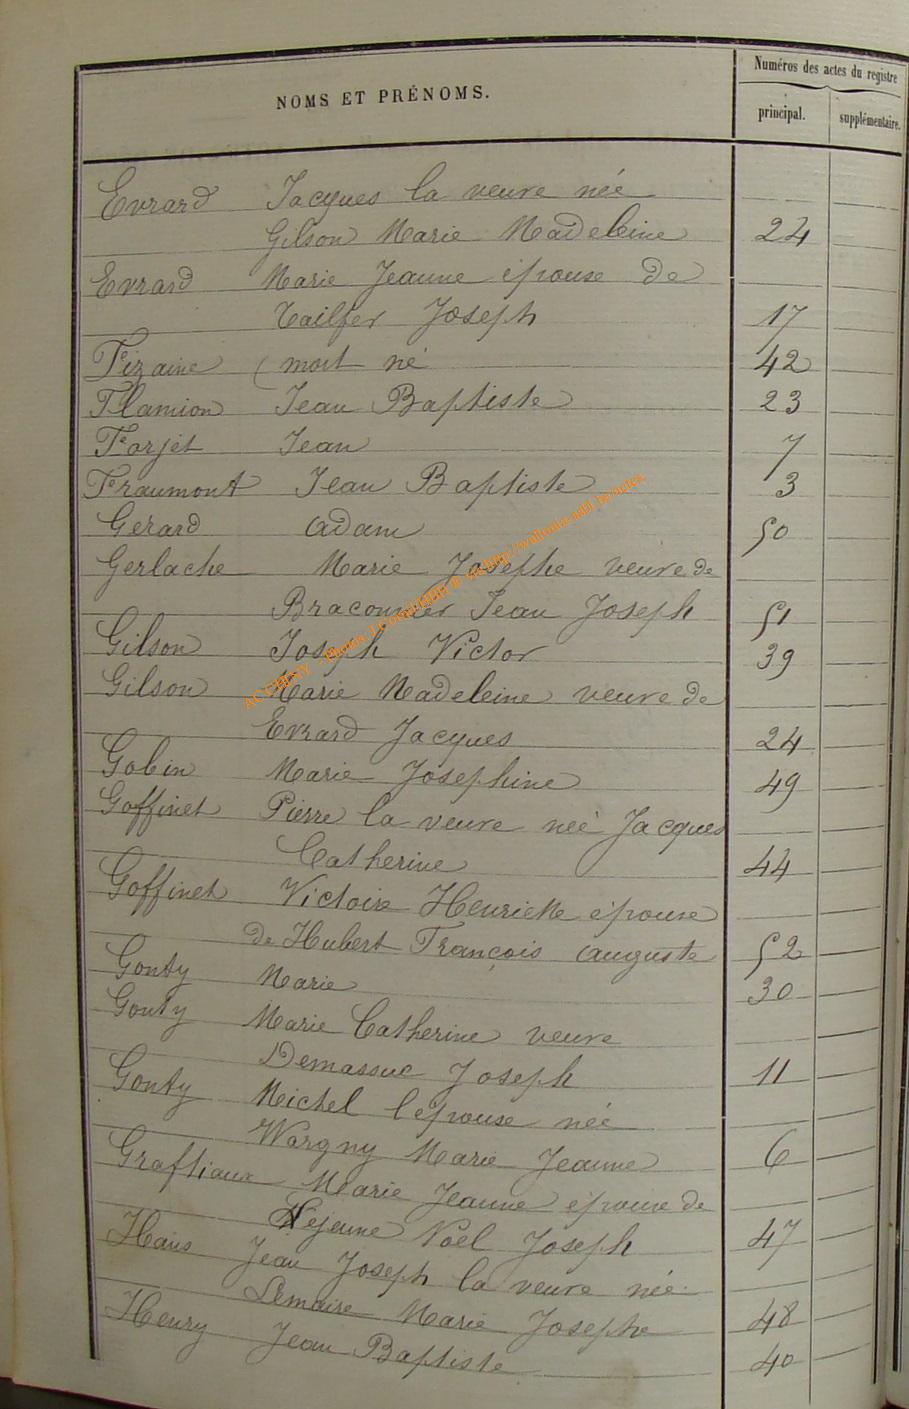 NOMS ET PRÉNOMS.
Numéros des actes du registre
principal.
supplémentaire.
Evrard Jacques la veuve née
Gilson Marie Madeleine 24
Evrard Marie Jeanne épouse de
Tailfer Joseph 17
Fizaine (mort né 42
Flamion Jean Baptiste 23
Forjet Jean 7
Fraumont Jean Baptiste 3
Gerard Adam 50
Gerlache Marie Josephe veuve de
Braconnier Jean Joseph 51
Gilson Joseph Victor 39
Gilson Marie Madeleine veuve de
Evrard Jacques 24
Gobin Marie Josephine 49
Goffinet Pierre la veuve née Jacques
Catherine 44
Goffinet Victoire Henriette épouse
de Hubert François Auguste 52
Gonty Marie 30
Gonty Marie Catherine veuve
Demassue Joseph 11
Gonty Michel l'épouse née
Wargny Marie Jeanne 6
Graftiaux Marie Jeanne épouse de
Lejeune Noël Joseph 47
Hans Jean Joseph la veuve née
Lemaire Marie Josephe 48
Henry Jean Baptiste 40